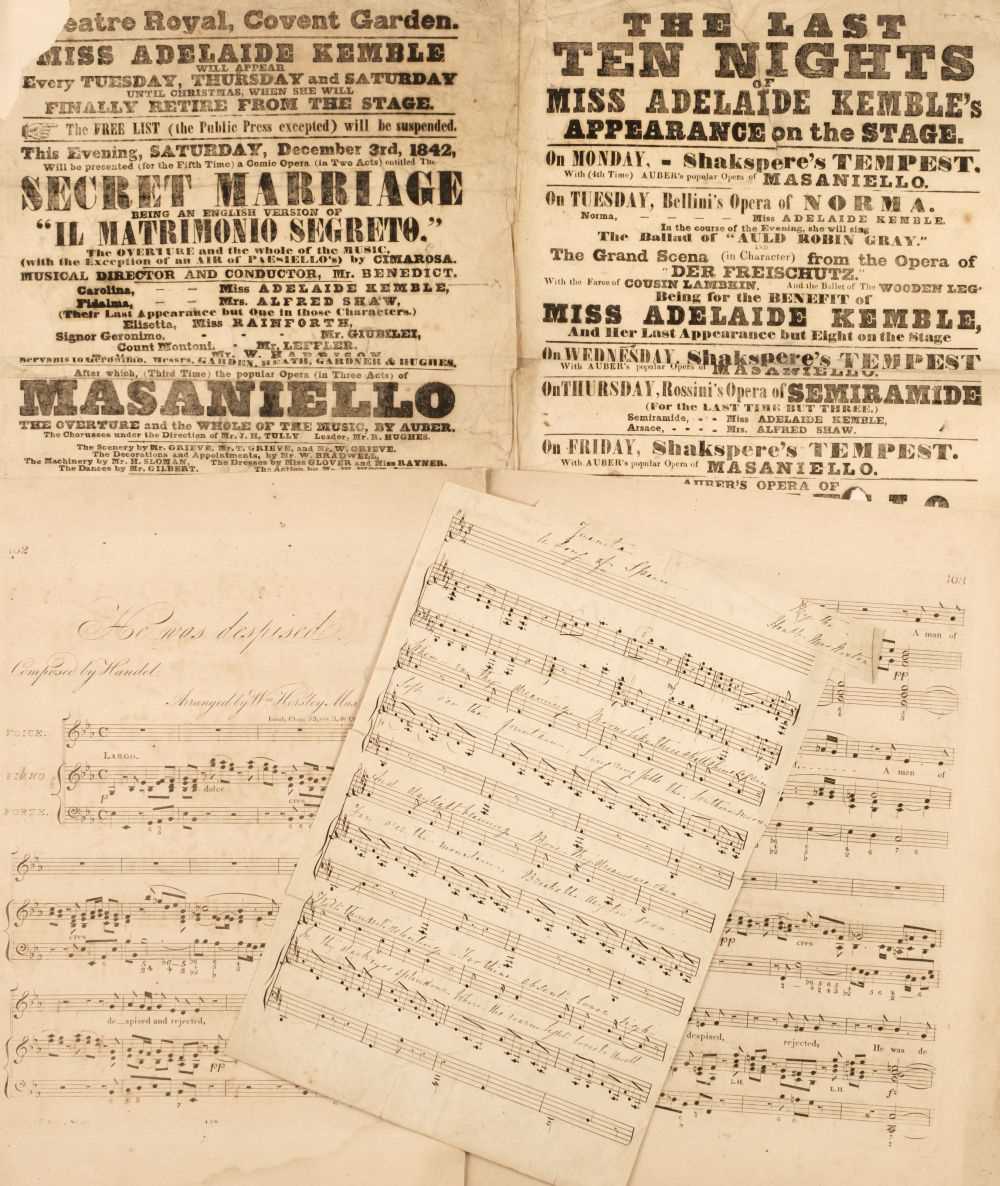 eatre Royal, Covent Garden.
MISS ADELAIDE KEMBLE
WILL APPEAR
Every TUESDAY, THURSDAY and SATURDAY
UNTIL CHRISTMAS, WHEN SHE WILL
FINALLY RETIRE FROM THE STAGE.
The FREE LIST (the Public Press excepted) will be suspended.
This Evening, SATURDAY, December 3rd, 1842,
Will be presented (for the Fifth Time) a Comic Opera (in Two Acts) entitled The
SECRET MARRIAGE
BEING AN ENGLISH VERSION OF
"IL MATRIMONIO SEGRETO."
The OVERTURE and the whole of the MUSIC,
(with the Exception of an AIR of PAESIELLO's) by CIMAROSA.
MUSICAL DIRECTOR AND CONDUCTOR, Mr. BENEDICT.
Carolina, — — Miss ADELAIDE KEMBLE,
Fidalma, — — Mrs. ALFRED SHAW,
(Their Last Appearance but One in those Characters.)
Elisetta, Miss RAINFORTH,
Signor Geronimo. - - - Mr. GIUBILEI,
Count Montoni. - Mr. LEFFLER.
Mr. W. HARRISON
Servants to Geronimo, Messrs. GARDEN, HEATH, GARDNER & HUGHES.
After which, (Third Time) the popular Opera (in Three Acts) of
MASANIELLO
THE OVERTURE and the WHOLE OF THE MUSIC, BY AUBER.
The Chorusses under the Direction of Mr. J. H. TULLY Leader, Mr. R. HUGHES.
The Scenery by Mr. GRIEVE, Mr. T. GRIEVE, and Mr. W. GRIEVE.
The Decorations and Appointments, by Mr. W. BRADWELL,
The Machinery by Mr. H. SLOMAN, The Dresses by Miss GLOVER and Miss RAYNER.
The Dances by Mr. GILBERT. The Action by
THE LAST
TEN NIGHTS
OF
MISS ADELAIDE KEMBLE's
APPEARANCE on the STAGE.
On MONDAY, - Shakspere's TEMPEST.
With (4th Time) AUBER's popular Opera of MASANIELLO.
On TUESDAY, Bellini's Opera of NORMA.
Norma, — — — — Miss ADELAIDE KEMBLE.
In the course of the Evening, she will sing
The Ballad of "AULD ROBIN GRAY."
AND
The Grand Scena (in Character) from the Opera of
"DER FREISCHUTZ."
With the Farce of COUSIN LAMBKIN. And the Ballet of The WOODEN LEG
Being for the BENEFIT of
MISS ADELAIDE KEMBLE,
And Her Last Appearance but Eight on the Stage
On WEDNESDAY, Shakspere's TEMPEST
With AUBER's popular Opera of MASANIELLO.
On THURSDAY, Rossini's Opera of SEMIRAMIDE
(For the LAST TIME BUT THREE.)
Semiramide, - - Miss ADELAIDE KEMBLE,
Arsace, - - - - Mrs. ALFRED SHAW.
On FRIDAY, Shakspere's TEMPEST.
With AUBER's popular Opera of MASANIELLO.
AUBER'S OPERA OF
102
He was despised
Composed by Handel.
Arranged by Wm. Horsley, Mus
Isaiah, Chap. 53, ver. 3,
VOICE.
LARGO.
PIANO
FORTE.
p
dolce
cres
cres
de_spised and rejected,
pp
Juanita
A Song of Spain
By the
Honble. Mrs. Norton
Soft o'er the fountain Ling'ring falls the Southern moon
Far o'er the mountain Breaks the day too soon
In thy dark eyes splendour Where the warm light loves to dwell
103
A man of
pp
A man of
pp
cres
despised, rejected, He was de
L.H.
L.H.
f